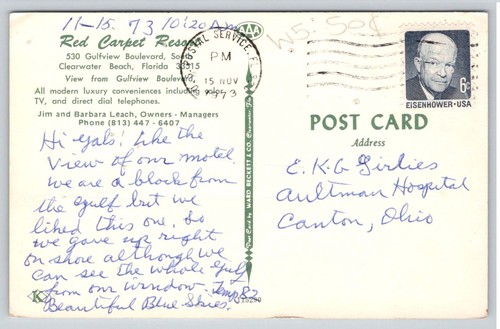 11-15. 73 10:20 Am
Red Carpet Resort
530 Gulfview Boulevard, South
Clearwater Beach, Florida 33515
View from Gulfview Boulevard
All modern luxury conveniences including color
TV, and direct dial telephones.
Jim and Barbara Leach, Owners - Managers
Phone (813) 447-6407
Hi gals! Like the
view of our motel.
we are a block from
the gulf but we
liked this one. So
we gave up right
on shore although we
can see the whole gulf
from our window. Temp 82
Beautiful Blue Skies.
K
AAA
U.S. POSTAL SERVICE
PM
15 NOV
1973
Post Card by WARD BECKETT & CO. Clearwater
W5. 50¢
6¢
EISENHOWER · USA
POST CARD
Address
E.K.G Girlies
Aultman Hospital
Canton, Ohio